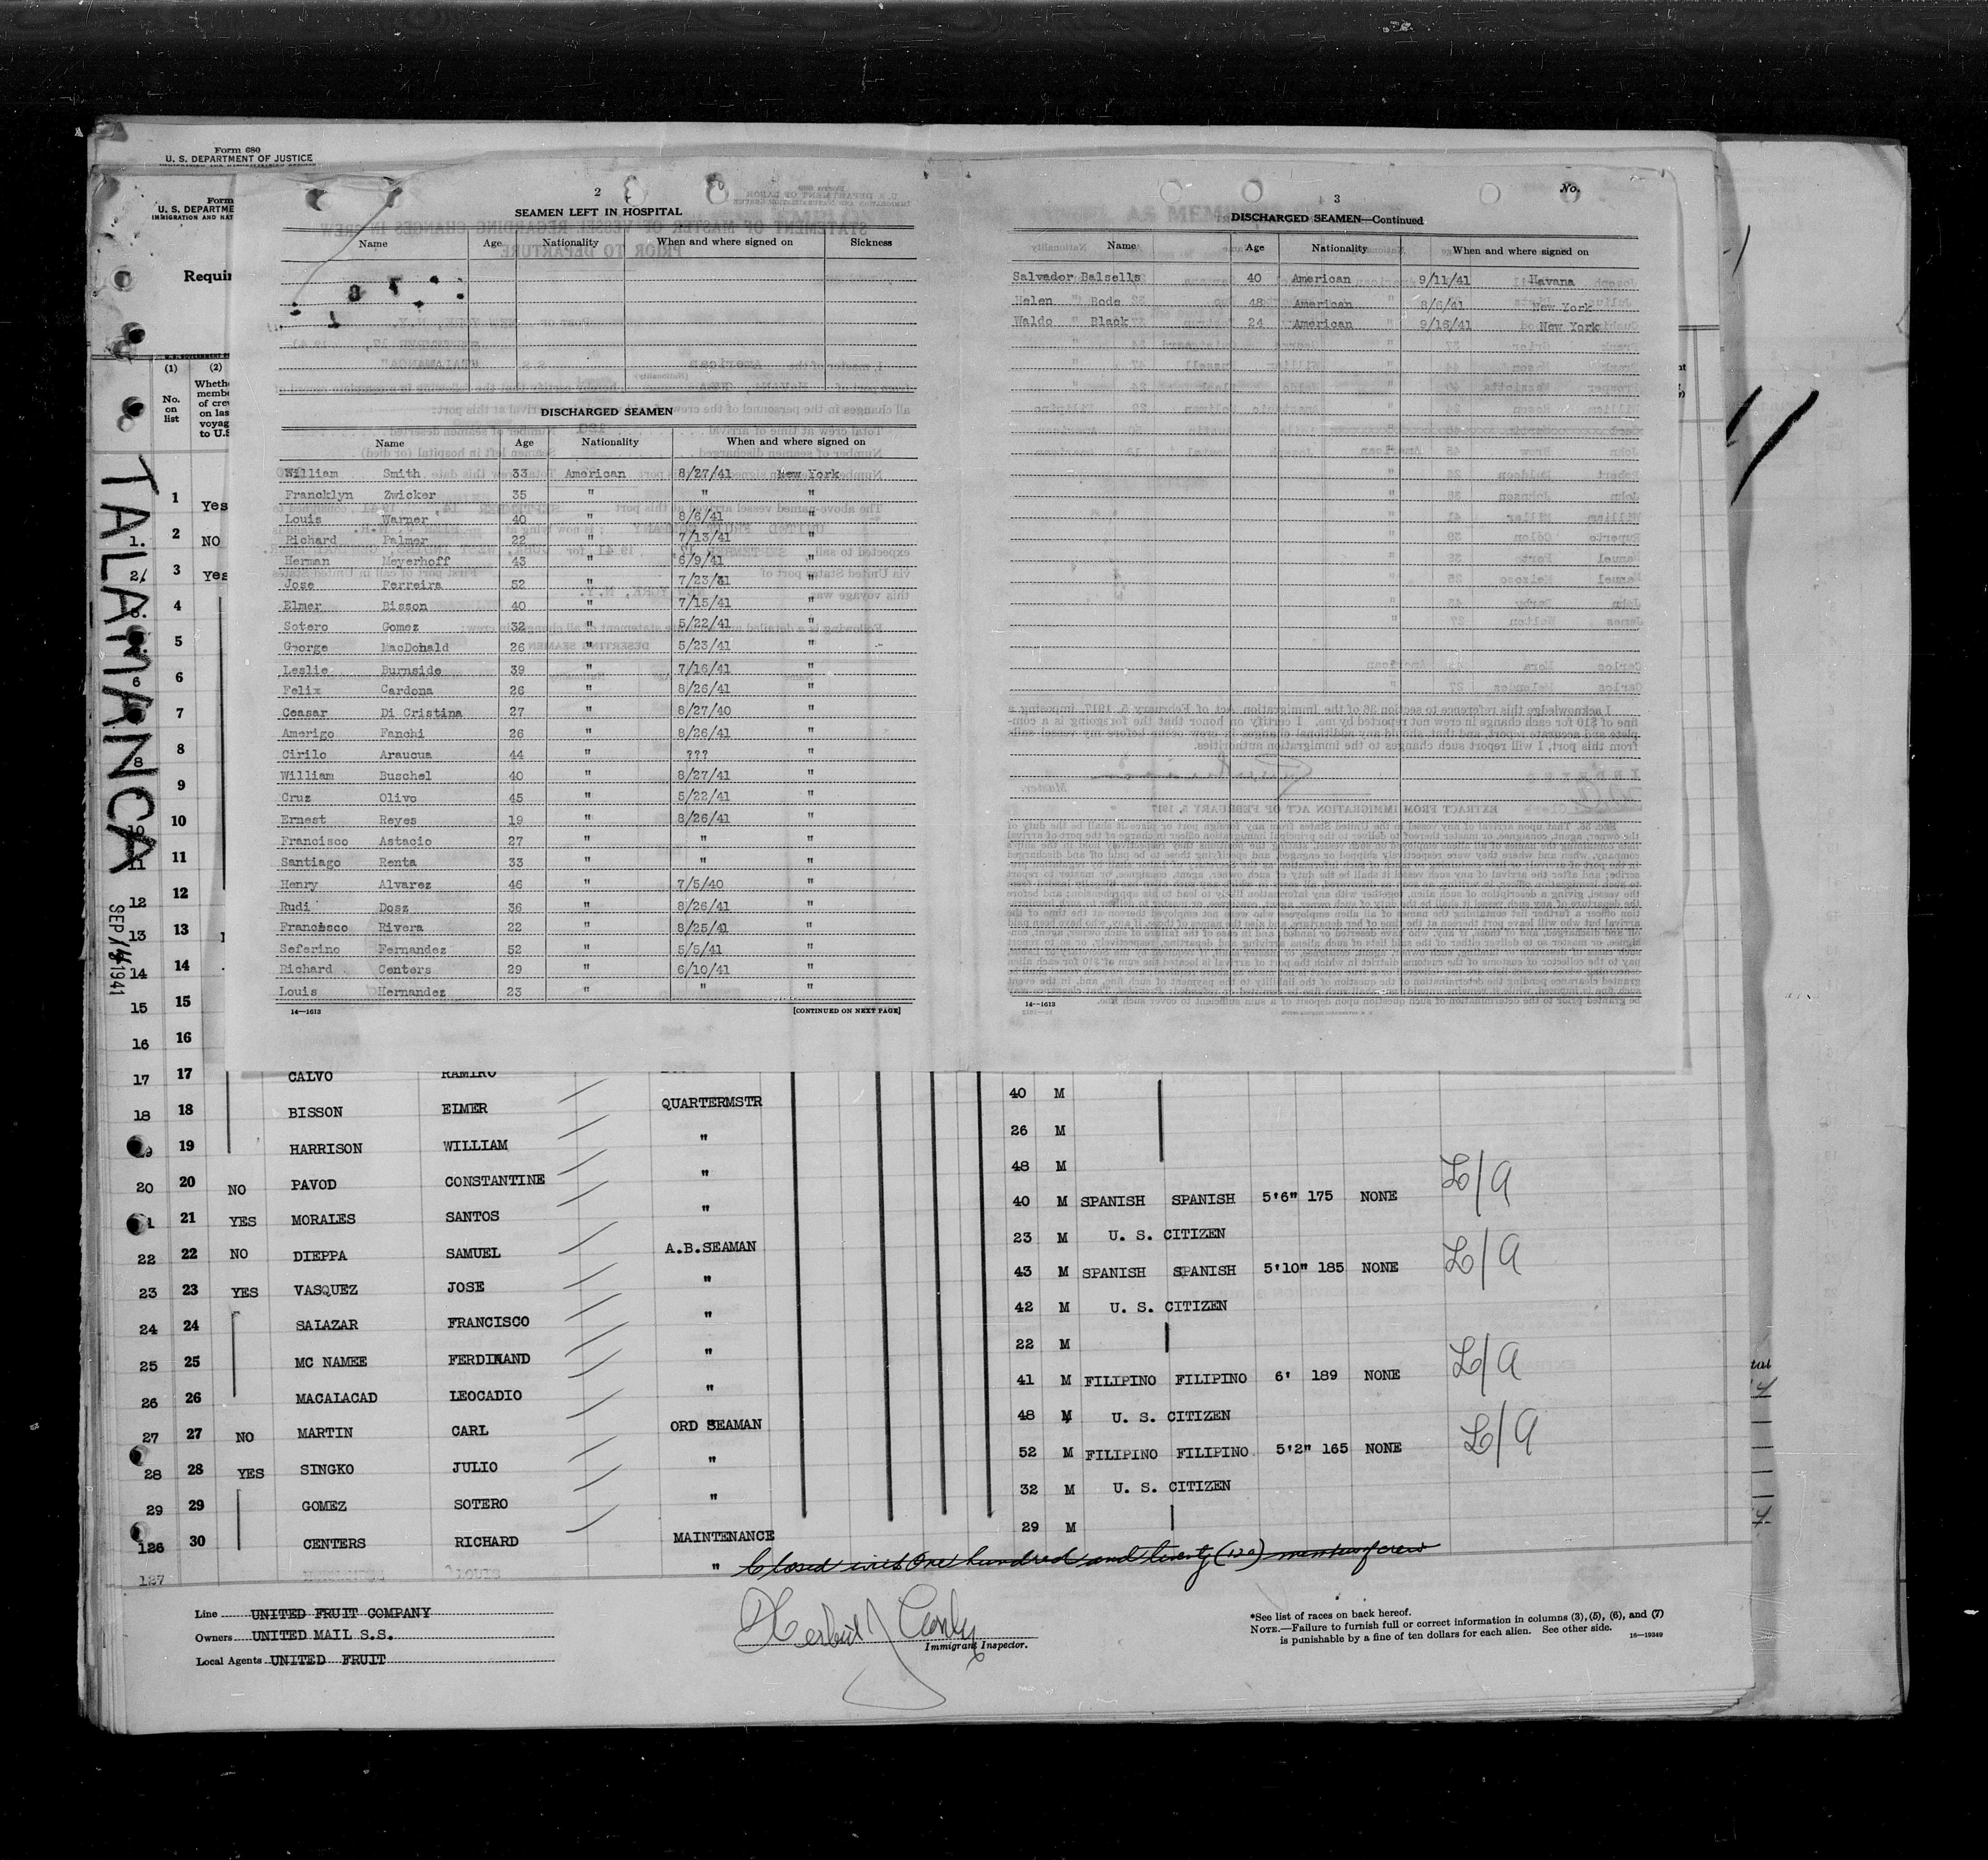 Form 680
U. S. DEPARTMENT OF JUSTICE
Form
U. S. DEPARTME
IMMIGRATION AND NAT
Requir
(1) (2)
No. on list
Wheth
membe
of cre
on las
voyag
to U.S
TALAMANCA
SEP 14 1941
2
SEAMEN LEFT IN HOSPITAL
Name Age Nationality When and where signed on Sickness
DISCHARGED SEAMEN
Name Age Nationality When and where signed on
William Smith 33 American 8/27/41 New York
Francklyn Zwicker 35 " " "
Louis Warner 40 " 8/6/41 "
Richard Palmer 22 " 7/13/41 "
Herman Meyerhoff 43 " 6/9/41 "
Jose Ferreira 52 " 7/23/41 "
Elmer Bisson 40 " 7/15/41 "
Sotero Gomez 32 " 5/22/41 "
George MacDonald 26 " 5/23/41 "
Leslie Burnside 39 " 7/16/41 "
Felix Cardona 26 " 8/26/41 "
Ceasar Di Cristina 27 " 8/27/40 "
Amerigo Fanchi 26 " 8/26/41 "
Cirilo Araucua 44 " ??? "
William Buschel 40 " 8/27/41 "
Cruz Olivo 45 " 5/22/41 "
Ernest Reyes 19 " 8/26/41 "
Francisco Astacio 27 " " "
Santiago Renta 33 " " "
Henry Alvarez 46 " 7/5/40 "
Rudi Dosz 36 " 8/26/41 "
Francisco Rivera 22 " 8/25/41 "
Seferino Fernandez 52 " 5/5/41 "
Richard Centers 29 " 6/10/41 "
Louis Hernandez 23 " " "
14—1613 [CONTINUED ON NEXT PAGE]
No.
3
DISCHARGED SEAMEN—Continued
Name Age Nationality When and where signed on
Salvador Balsells 40 American 9/11/41 Havana
Helen Bode 48 American 8/6/41 New York
Waldo Black 24 American 9/16/41 New York
14—1613
1 Yes
1. 2 NO
2. 3 Yes
4
5
6 6
7
8 8
9
10 10
11 11
12 12
13 13
14 14
15 15
16 16
17 17 CALVO RAMIRO
18 18 BISSON ELMER QUARTERMSTR 40 M
19 19 HARRISON WILLIAM " 26 M
20 20 NO PAVOD CONSTANTINE " 48 M
21 21 YES MORALES SANTOS " 40 M SPANISH SPANISH 5'6" 175 NONE
22 22 NO DIEPPA SAMUEL A.B.SEAMAN 23 M U. S. CITIZEN
23 23 YES VASQUEZ JOSE " 43 M SPANISH SPANISH 5'10" 185 NONE
24 24 SALAZAR FRANCISCO " 42 M U. S. CITIZEN
25 25 MC NAMEE FERDINAND " 22 M
26 26 MACALACAD LEOCADIO " 41 M FILIPINO FILIPINO 6' 189 NONE
27 27 NO MARTIN CARL ORD SEAMAN 48 M U. S. CITIZEN
28 28 YES SINGKO JULIO " 52 M FILIPINO FILIPINO 5'2" 165 NONE
29 29 GOMEZ SOTERO " 32 M U. S. CITIZEN
126 30 CENTERS RICHARD MAINTENANCE 29 M
127 " Closed with One hundred and twenty (120) members of crew
Line UNITED FRUIT COMPANY
Owners UNITED MAIL S.S.
Local Agents UNITED FRUIT
Immigrant Inspector.
*See list of races on back hereof.
NOTE.—Failure to furnish full or correct information in columns (3), (5), (6), and (7)
is punishable by a fine of ten dollars for each alien. See other side.
16—19349